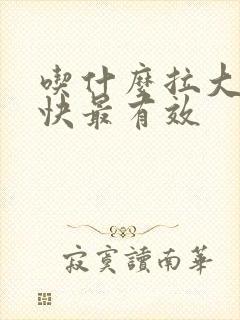 喫什麼拉大
快最有效
寂寞讀南華